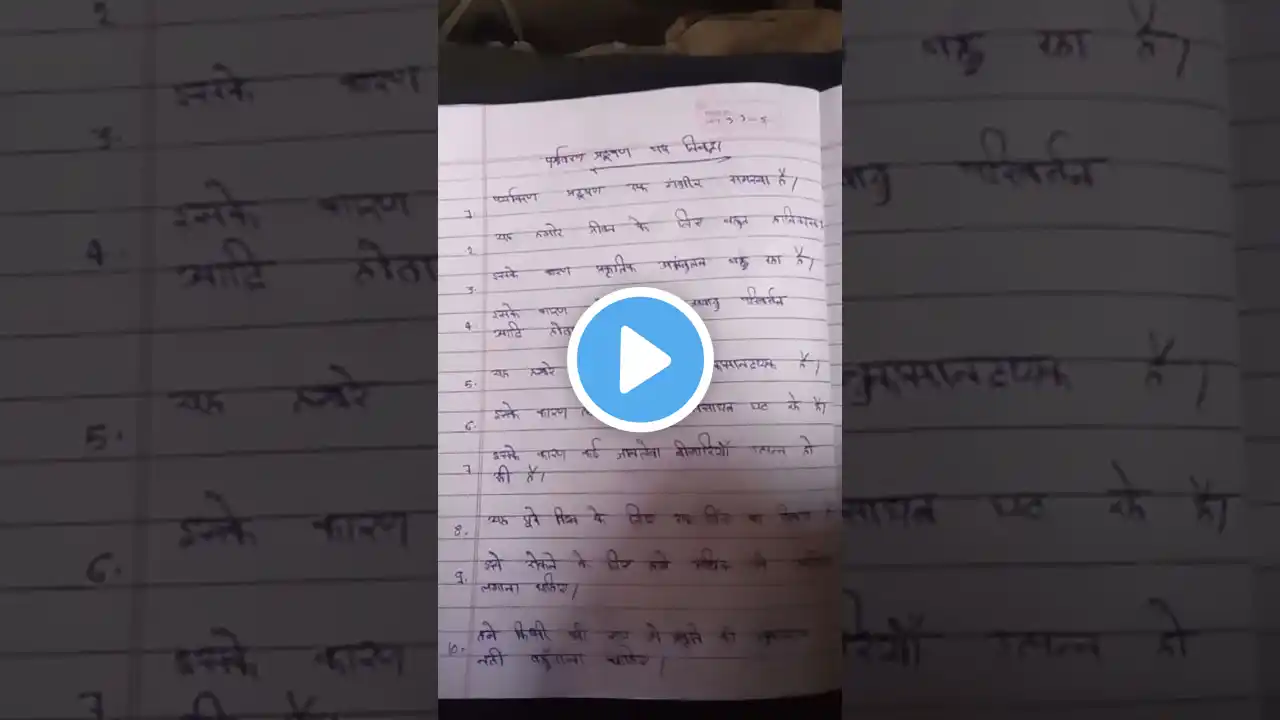 पर्यावरण प्रदूषण पर निबंध
1. पर्यावरण प्रदूषण एक गंभीर समस्या है।
2. यह हमारे जीवन के लिए बहुत हानिकारक
3. इसके कारण प्रकृतिक असंतुलन बढ़ रहा है।
4. इसके कारण जलवायु परिवर्तन
आदि होता
5. यह हमारे नुकसानदायक है।
6. इसके कारण संसाधन घट रहे है।
7. इसके कारण कई जानलेवा बीमारियाँ उत्पन्न हो
की है।
8. यह पूरे विश्व के लिए एक चिंता का विषय।
9. इसे रोकने के लिए हमे अधिक से
लगाना चाहिए।
10. हमे किसी भी रूप में प्रकृति को नुकसान
नही पहुँचाना चाहिए।